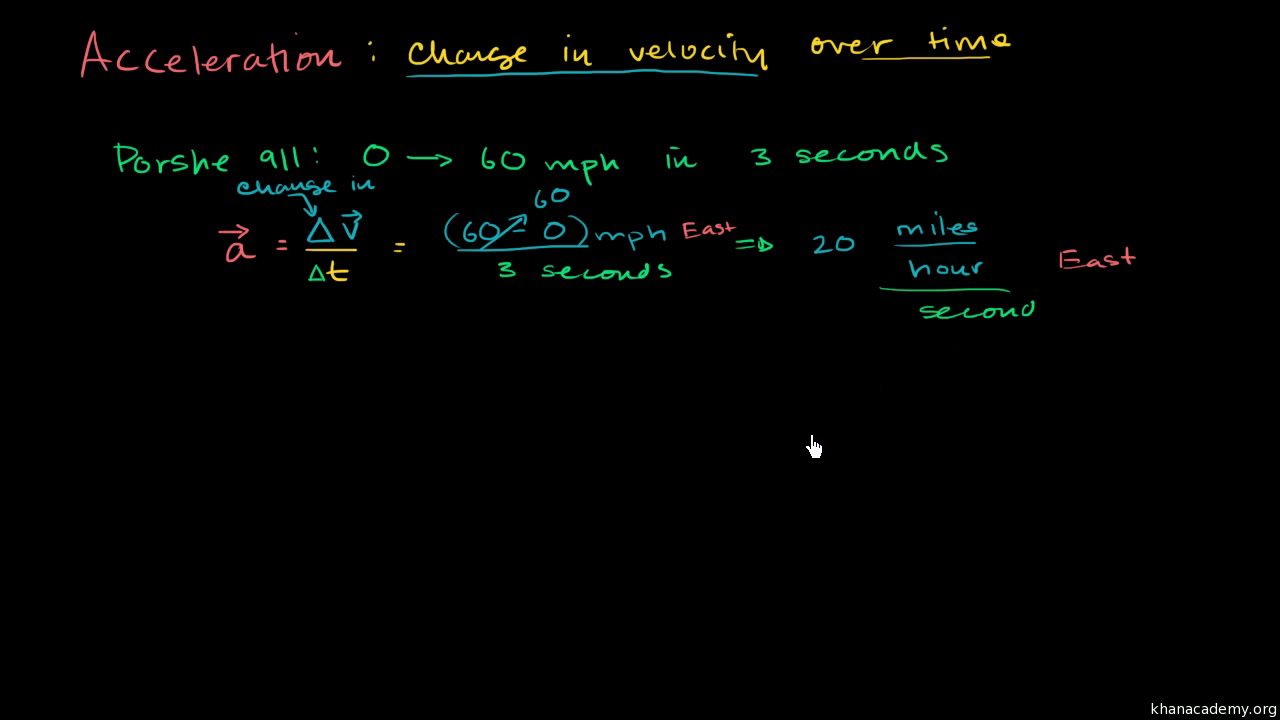 Acceleration : change in velocity over time
Porshe 911: 0 → 60 mph in 3 seconds
change in
60
a⃗ = Δv⃗ / Δt = (60 - 0) mph East / 3 seconds ⇒ 20 miles / hour / second East
khanacademy.org